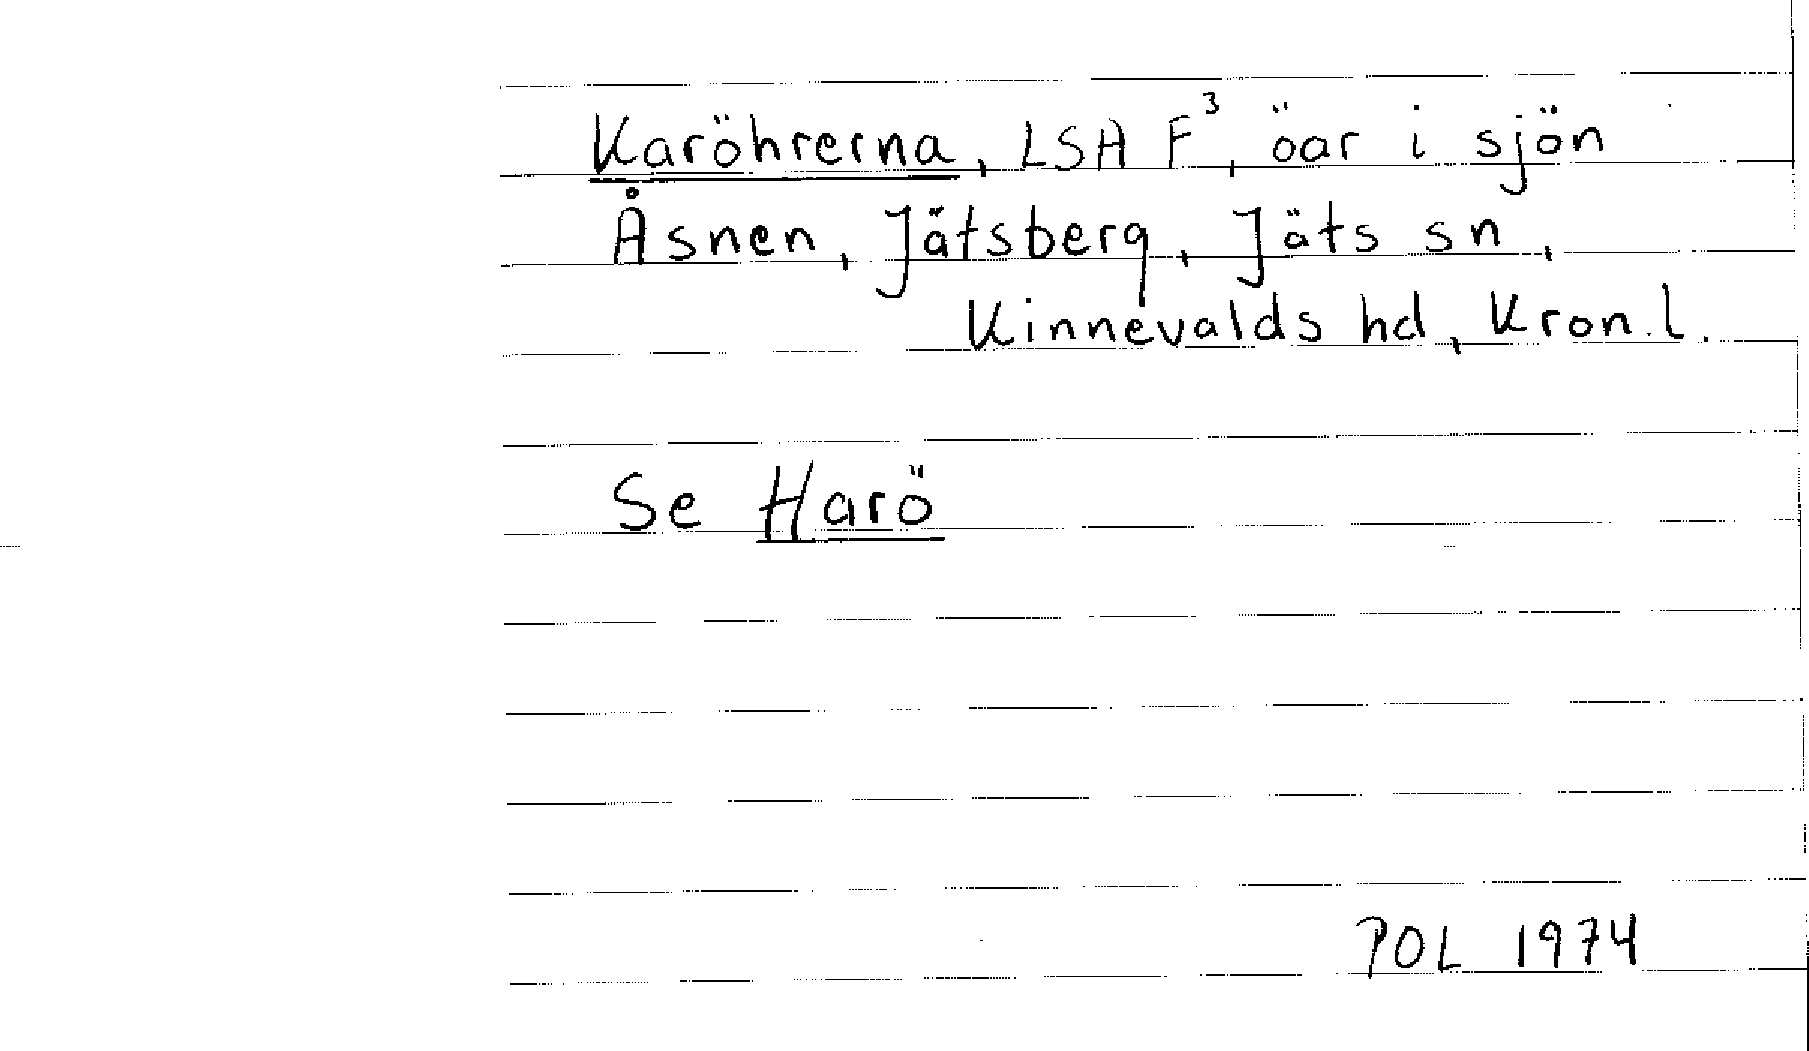 Karöhrerna, LSA F³, öar i sjön
Åsnen, Jätsberg, Jäts sn,
Kinnevalds hd, Kron.l.
Se Harö
POL 1974